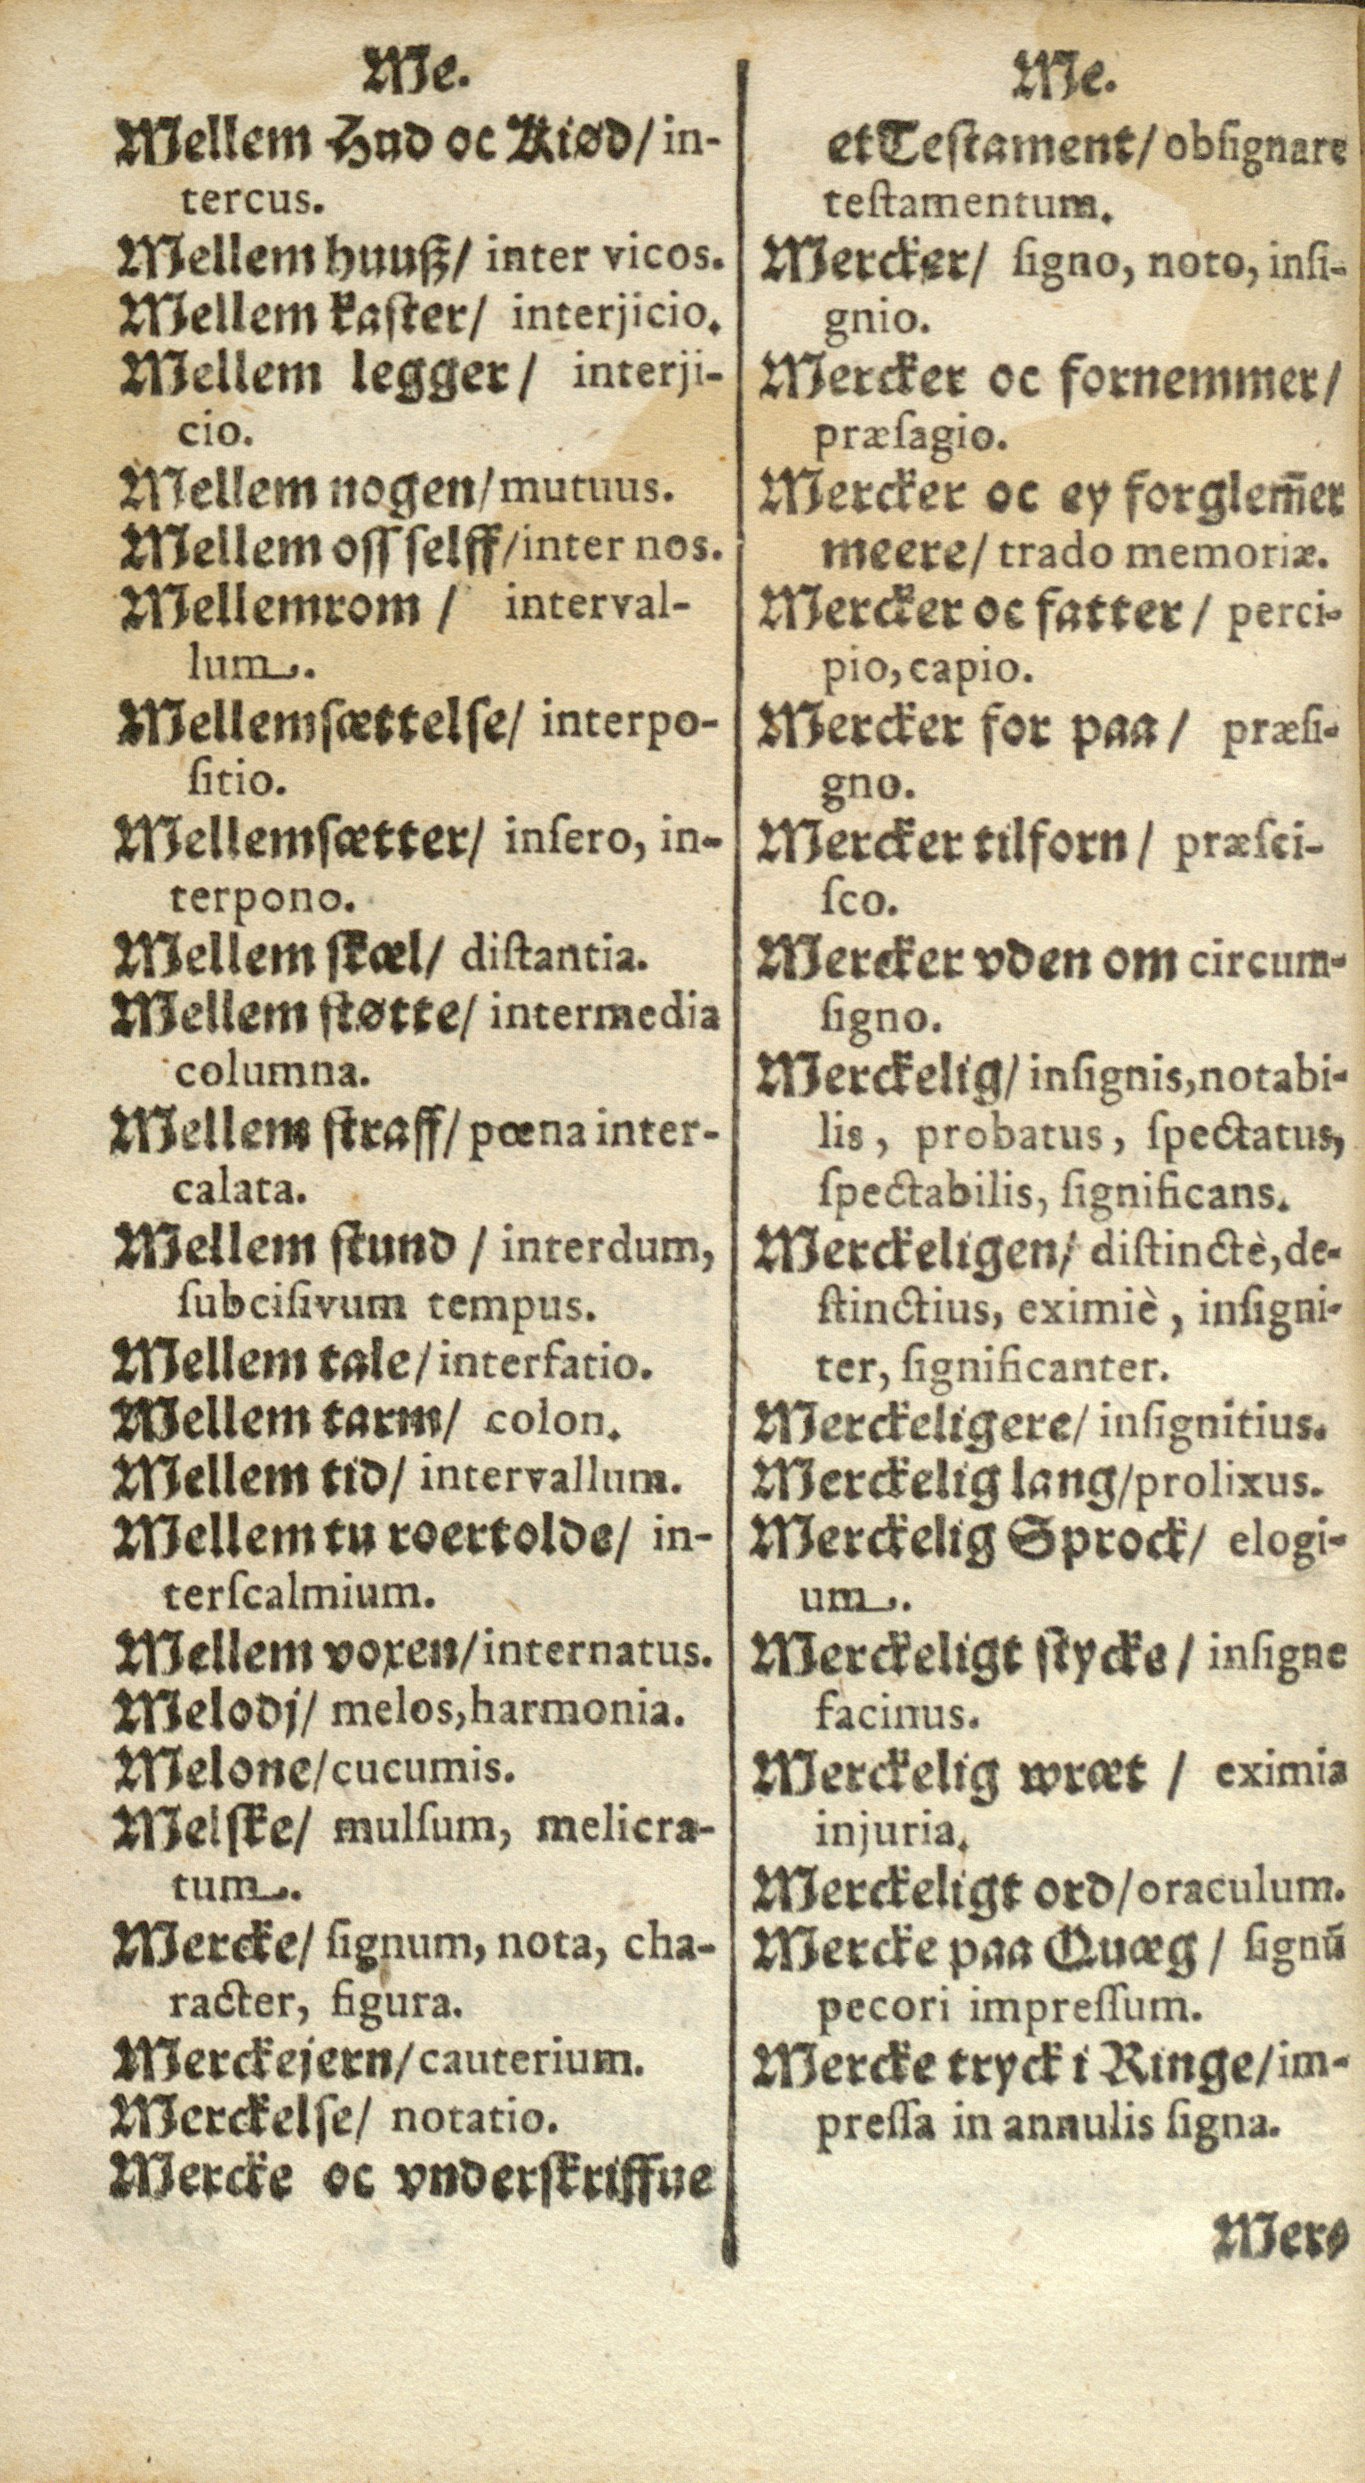 Me.
Mellem Hud oc Kiød/ in-
tercus.
Mellem huuß/ inter vicos.
Mellem kaſter/ interjicio.
Mellem legger/ interji-
cio.
Mellem nogen/ mutuus.
Mellem oſſ ſelff/ inter nos.
Mellemrom / interval-
lum.
Mellemſættelſe/ interpo-
ſitio.
Mellemſætter/ inſero, in-
terpono.
Mellem ſkæl/ diſtantia.
Mellem ſtøtte/ intermedia
columna.
Mellem ſtraff/ pœna inter-
calata.
Mellem ſtund / interdum,
ſubciſivum tempus.
Mellem tale/ interfatio.
Mellem tarm/ colon.
Mellem tid/ intervallum.
Mellem tu roertolde/ in-
terſcalmium.
Mellem voxen/ internatus.
Melodj/ melos, harmonia.
Melone/ cucumis.
Melſke/ mulſum, melicra-
tum.
Mercke/ ſignum, nota, cha-
racter, figura.
Merckejern/ cauterium.
Merckelſe/ notatio.
Mercke oc vnderſkriffue
Me.
et Teſtament/ obſignare
teſtamentum.
Mercker/ ſigno, noto, inſi-
gnio.
Mercker oc fornemmer/
præſagio.
Mercker oc ey forglem̄er
meere/ trado memoriæ.
Mercker oc fatter / perci-
pio, capio.
Mercker for paa / præſi-
gno.
Mercker tilforn / præſci-
ſco.
Mercker vden om circum-
ſigno.
Merckelig/ inſignis, notabi-
lis, probatus, ſpectatus,
ſpectabilis, ſignificans.
Merckeligen/ diſtinctè, de-
ſtinctius, eximiè, inſigni-
ter, ſignificanter.
Merckeligere/ inſignitius.
Merckelig lang/ prolixus.
Merckelig Sprock/ elogi-
um.
Merckeligt ſtycke / inſigne
facinus.
Merckelig wræt / eximia
injuria.
Merckeligt ord/ oraculum.
Mercke paa Quæg / ſignū
pecori impreſſum.
Mercke tryck i Ringe/ im-
preſſa in annulis ſigna.
Mer-